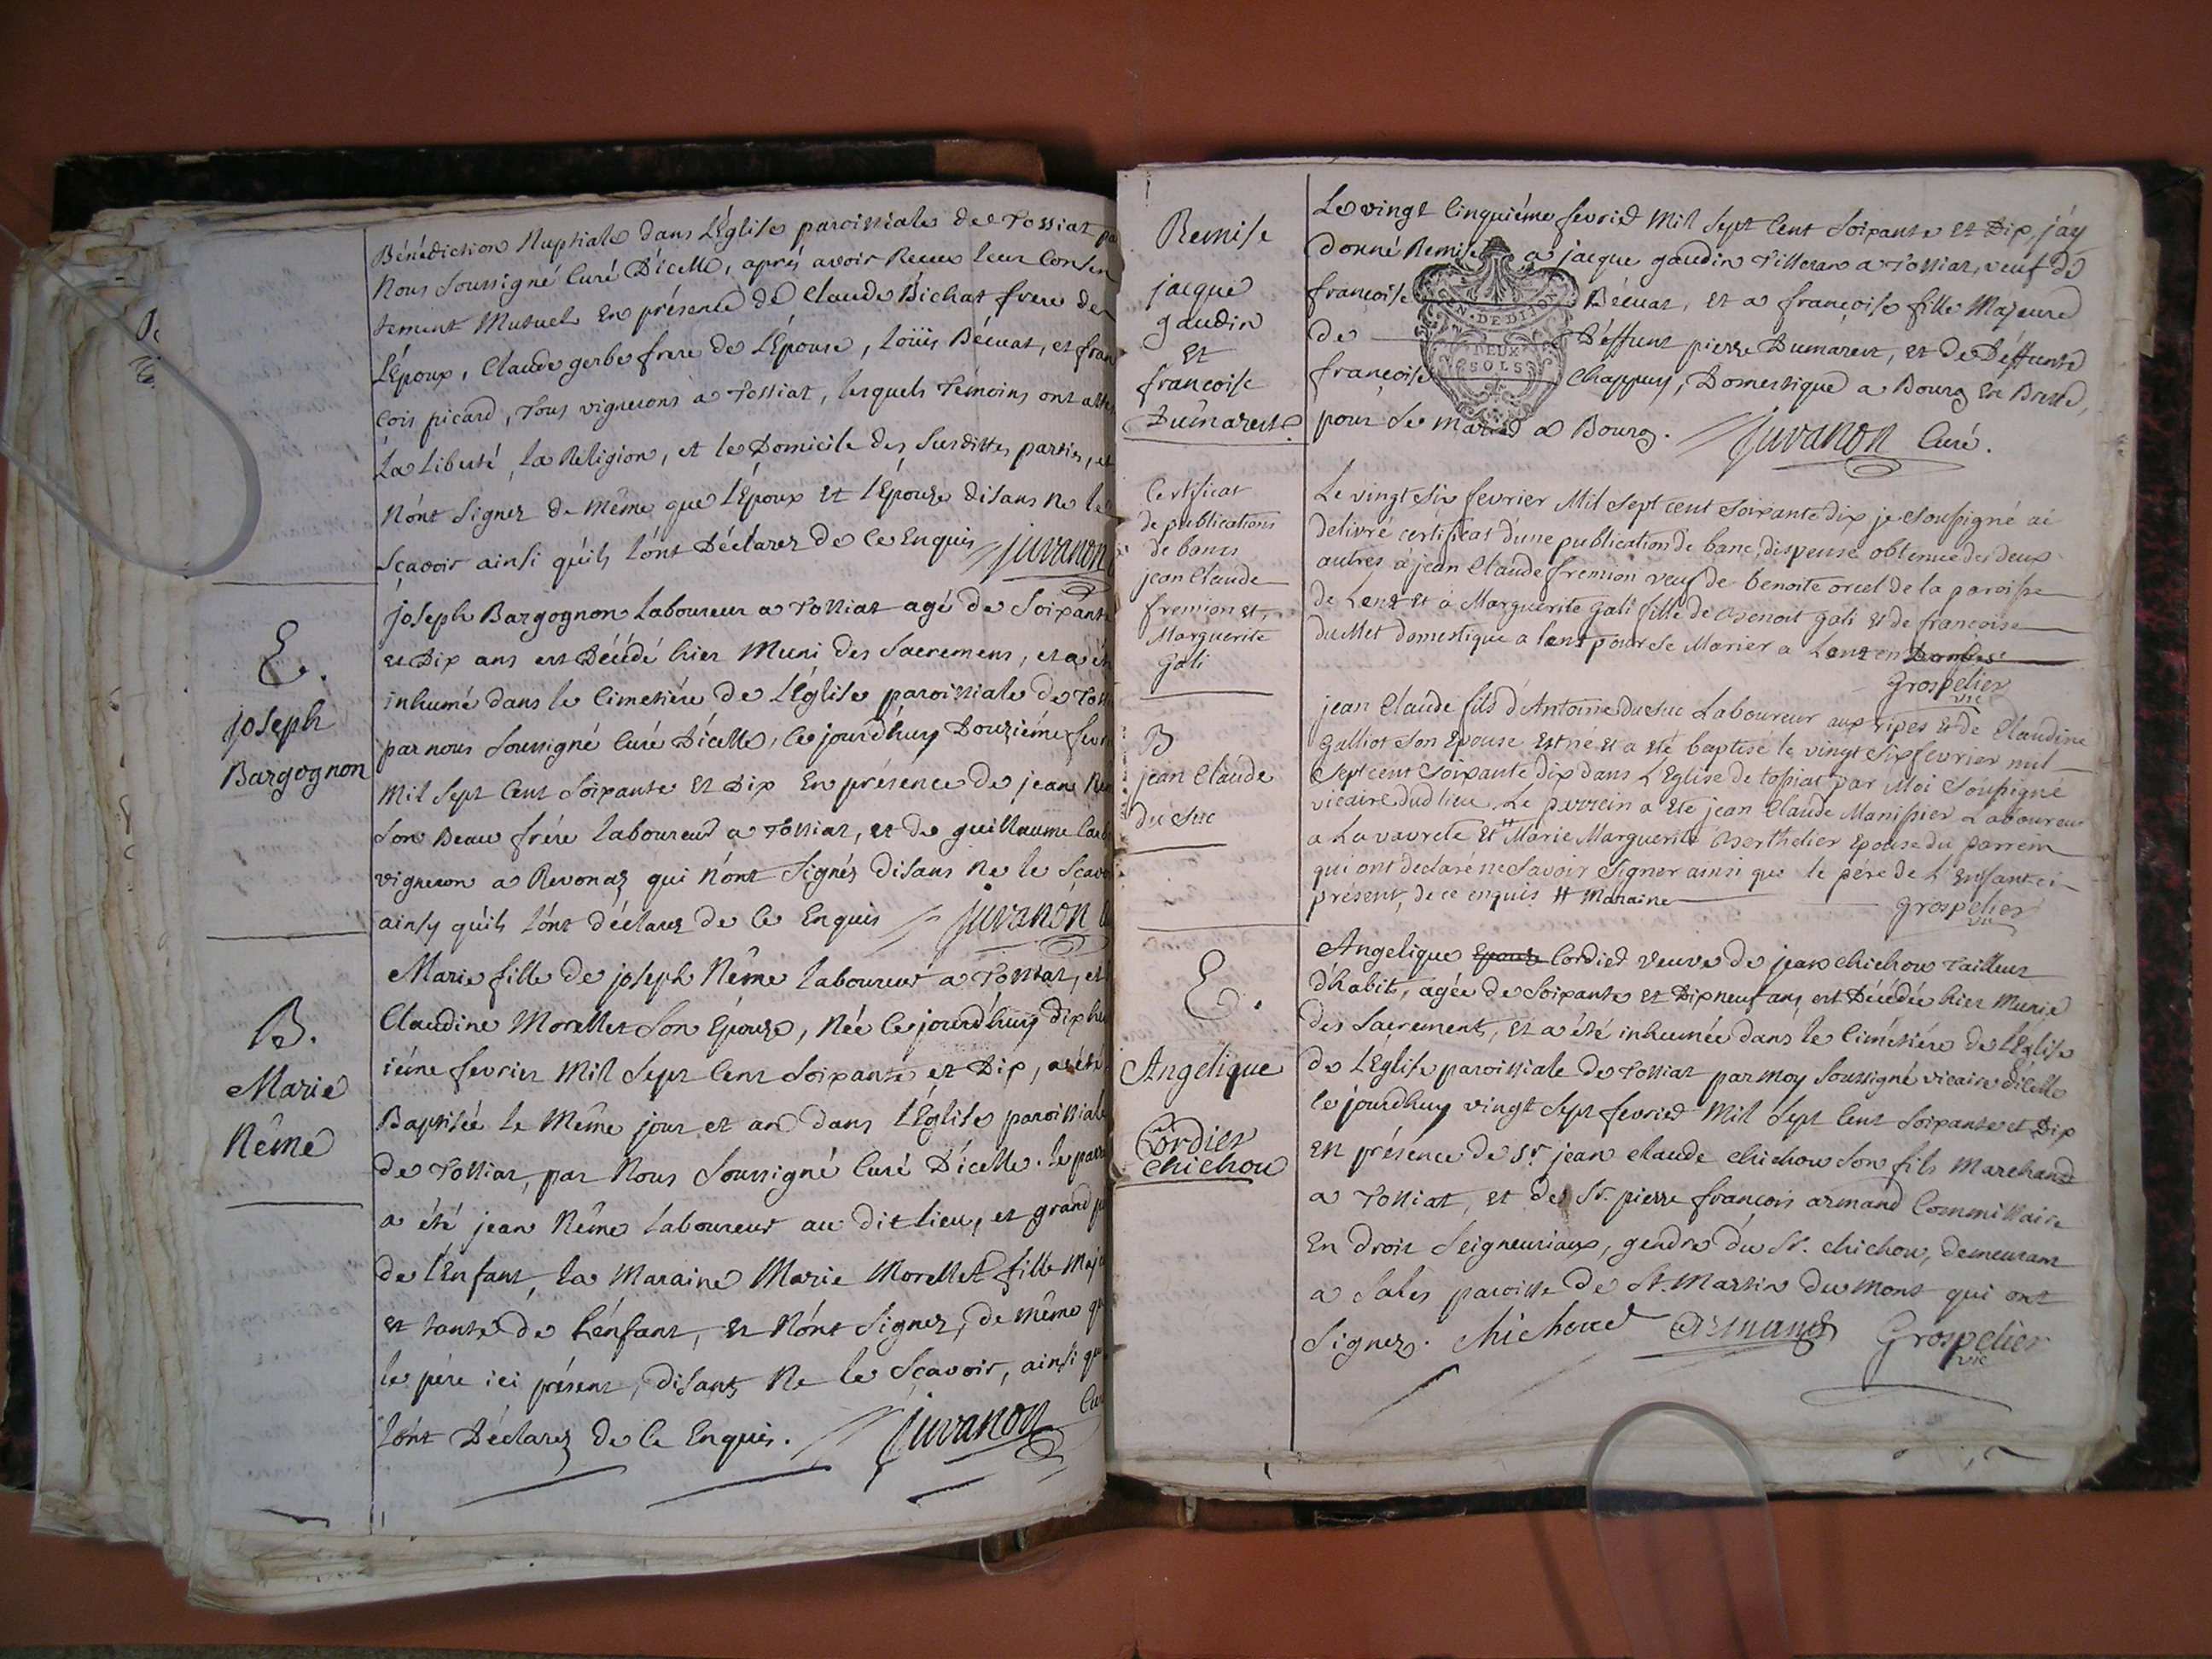 Bénédiction Nuptiale dans L'Église paroissiale de Tossiat
Nous Soussigné Curé D'icelle, aprés avoir Receu leur Consen
tement Mutuel En présence de Claude Bichat frere de
L'Époux, Claude gerbe frere de L'Épouse, Loüis Bécuat, et fran
cois picard, Tous vignerons a Tossiat, lesquels Témoins ont
La Liberté, la Réligion, et le Domicile des Susdittes parties, et
N'ont Signez de Même que L'Époux et L'Épouze disans Ne le
Sçavoir ainsi qu'ils l'ont Déclarez de Ce Enquis juvanon
E.
joseph
Bargognon
joseph Bargognon Laboureur a Tossiat agé de Soixante
et Dix ans est Décédé hier Muni des Sacremens, et a été
inhumé dans le Cimetiére de L'Église paroissiale de
par nous Soussigné Curé D'icelle, ce jourd'huy Douziéme
Mil Sept Cent Soixante et Dix En présence de jean
Son Beau frére Laboureur a Tossiat, et de guillaume
vigneron a Revonaz qui N'ont Signés disans Ne le
ainsy qu'ils l'ont déclarez de Ce Enquis juvanon
B.
Marie
Nême
Marie fille de joseph Nême Laboureur a Tossiat, et
Claudine Morellet Son Epouze, Née ce jourd'huy dix hu
iéme fevrier Mil Sept Cent Soixante et Dix, a été
Baptisée le Même jour et an dans L'Église paroissiale
de Tossiat, par Nous Soussigné Curé D'icelle. le
a été jean Nême Laboureur au dit lieu, et grand
de L'Enfant, La Maraine Marie Morellet fille
et tante de L'énfant, et N'ont Signez, de même
le pére ici présent, disants Ne le Sçavoir, ainsi
l'ont Déclarez de Ce Enquis. juvanon
Remise
jacque
gaudin
Et
francoise
Dumarest
Le vingt Cinquiéme fevrier Mil Sept Cent Soixante et Dix, j'ay
donné Remise a jacque gaudin Tisseran a Tossiat, veuf de
françoise Bécuat, et a françoise fille Majeure
de Déffunt pierre Dumarest, et de Déffunte
françoise Chappuy, Domestique a Bourg En Bresse,
pour Se marier a Bourg. juvanon Curé.
DEUX
SOLS
Certificat
de publications
de bancs
jean Claude
fremion et,
Marguerite
Gali
Le vingt Six fevrier Mil Sept cent Soixante dix je Soussigné ai
delivré certificat d'une publication de banc, dispense obtenue des deux
autres à jean Claude fremion veuf de benoite orcel de la paroisse
de Lent et à Marguerite Gali fille de Benoit Gali et de francoise
duMet domestique a lent pour Se Marier a Lent en Dombes
Grospelier
vic
B
jean Claude
du Suc
jean Claude fils d'Antoine du Suc Laboureur aux ripes et de Claudine
Galliot Son Epouse est né et a été baptisé le vingt Six fevrier mil
Sept cent Soixante dix dans L'Eglise de tossiat par Moi Soussigné
vicaire dud lieu. Le parrein a été jean Claude Manissier Laboureur
a La vavrete et # Marie Marguerite Berthelier Epouse du parrein
qui ont declaré ne Savoir Signer ainsi que le pére de L'Enfant ci
présent, de ce enquis # Maraine
Grospelier
vic
E.
Angelique
Cordier
Chichou
Angelique Epouse Cordier veuve de jean chichou Tailleur
d'habits, agée de Soixante et Dix neuf ans, est Décédée hier Munie
des Sacrements, et a été inhumée dans le Cimétiére de L'Église
de L'Église paroissiale de Tossiat par moy Soussigné vicaire d'icelle
ce jourd'huy vingt Sept fevrier Mil Sept Cent Soixante et Dix
En présence de Sr. jean claude chichou Son fils Marchand
a Tossiat, et de Sr. pierre françois armand Commissaire
En droit Seigneuriaux, gendre du Sr. chichou, demeurant
a Sales paroisse de St. Martin du Mont qui ont
Signez. chichoud Armand Grospelier
vic